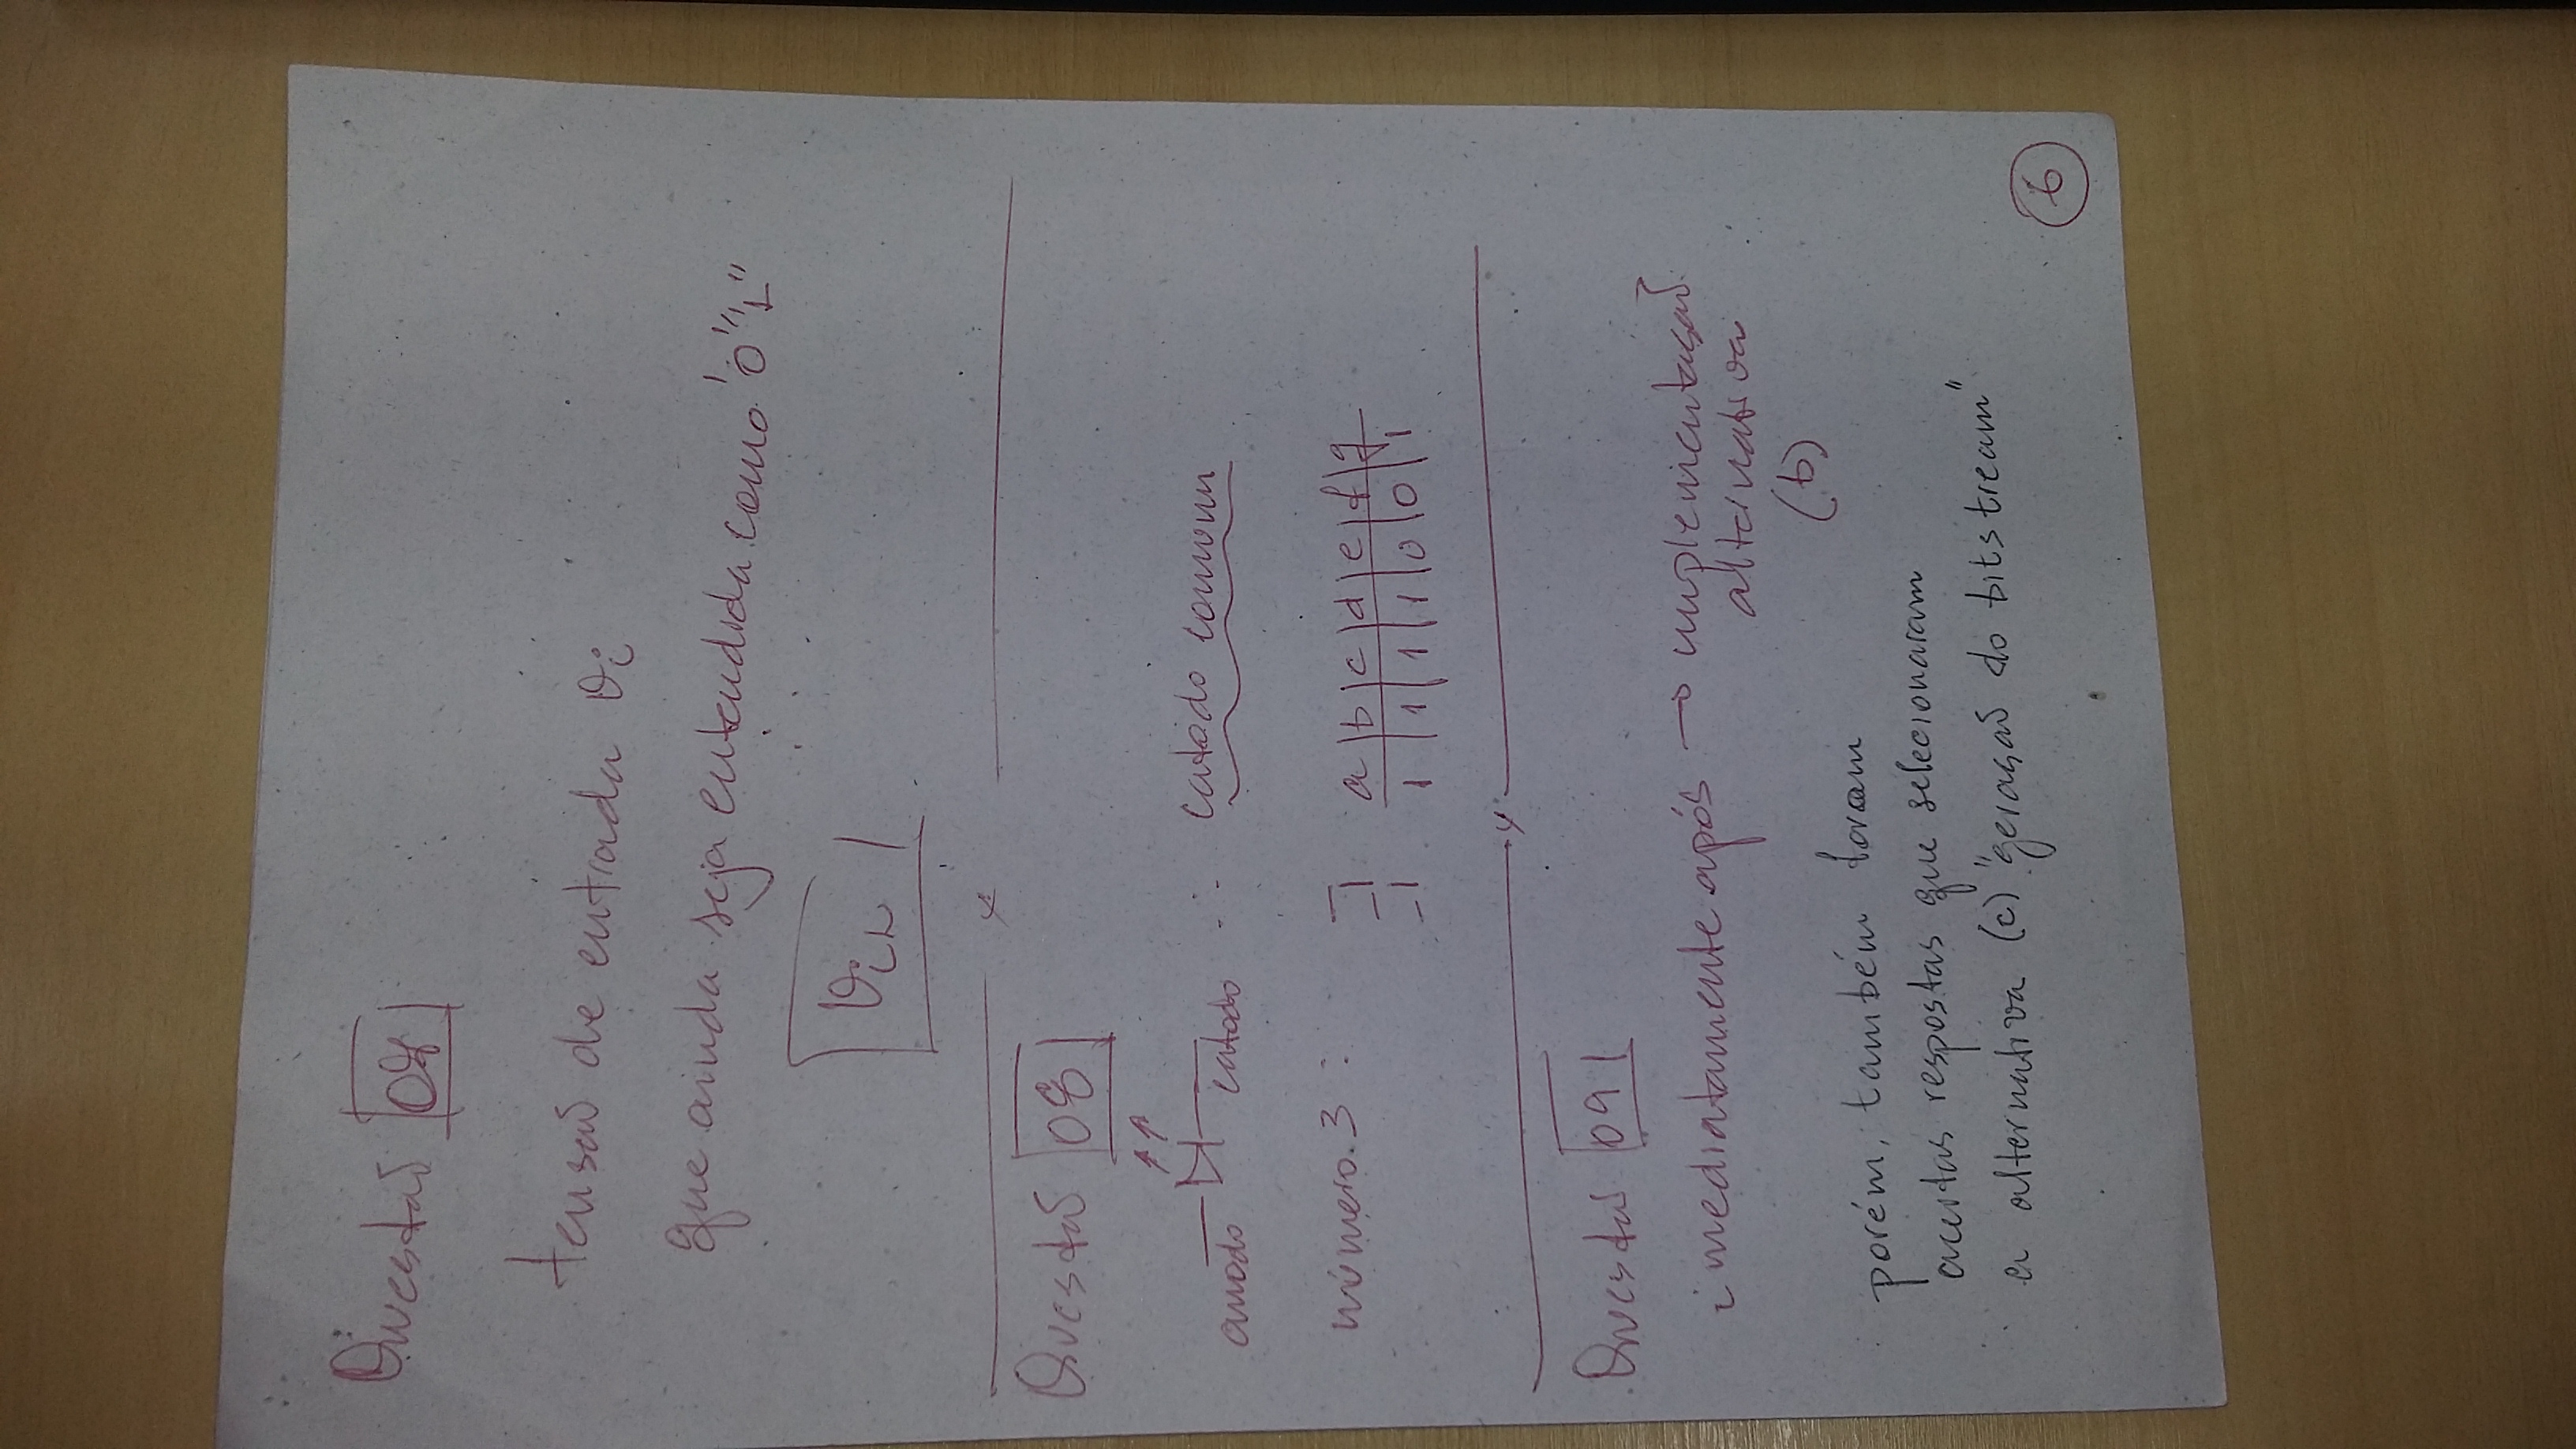 Questão 07
tensão de entrada Vi
que ainda seja entendida como '0' "L"
ViL
Questão 08
anodo catodo ∴ catodo comum
número 3 : a b c d e f g
1 1 1 1 0 0 1
Questão 09
imediatamente após → implementação
alternativa
(b)
porém, também foram
aceitas respostas que selecionaram
a alternativa (c) "geração do bitstream"
6